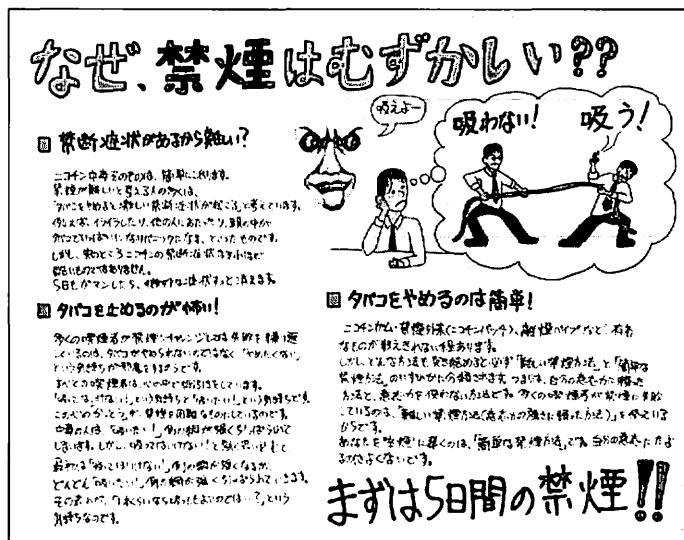 なぜ、禁煙はむずかしい??
吸えよー
吸わない! 吸う!
禁断症状があるから難しい?
ニコチン中毒そのものは、簡単になおります。
禁煙が難しいと考える人の多くは、
「タバコをやめると激しい禁断症状が起こる」と考えています。
例えば、イライラしたり、他の人にあたったり、頭の中が
タバコでいっぱいになりパニックになる、といったものです。
しかし、実のところニコチンの禁断症状はそれほど
ものではありません。
5日もガマンしたら、症状はすっと消えます。
タバコを止めるのが怖い!
多くの喫煙者が禁煙にチャレンジしては失敗を繰り返
しているのは、タバコがやめられないのではなく「やめたくない」
という気持ちが邪魔をするからです。
すべての喫煙者は、心の中で綱引きをしています。
「吸ってはいけない!」という気持ちと「吸いたい!」という気持ちです。
この心のかっとうが、禁煙を困難なものにしているのです。
中毒の人は、「吸いたい!」側の綱が強く引っぱられて
しまいます。しかし、「吸ってはいけない!」と強く思い込むと
最初は「吸ってはいけない!」側の綱が強くなるが、
どんどん「吸いたい!」側の綱が強く引っぱられていきます。
その表れが、「1本くらいなら吸ってもよいのでは…?」という
気持ちなのです。
タバコをやめるのは簡単!
ニコチンガム・禁煙外来(ニコチンパッチ)、離煙パイプなど、有名
なものが数えきれない程あります。
しかし、どんな方法も突き詰めると必ず「難しい禁煙方法」と「簡単な
禁煙方法」のいずれかに分類されます。つまりは、自分の意志力に頼った
方法と、意志力を使わない方法です。多くの喫煙者が禁煙に失敗
しているのは、「難しい禁煙方法(意志力の強さに頼った方法)」を使っている
からです。
あなたを禁煙に導くのは、「簡単な禁煙方法」です。自分の意志にたよ
るのはよくないです。
まずは5日間の禁煙!!